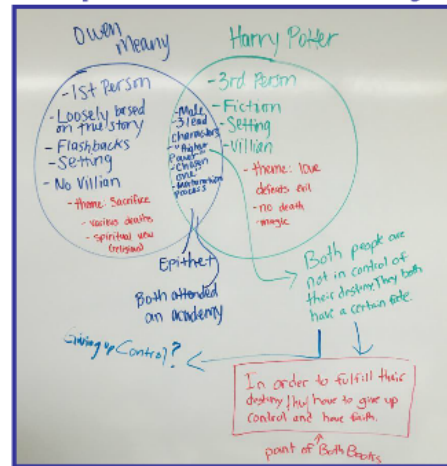 Owen
Meany
Harry Potter
-1st Person
-Loosely based
on true story
-Flashbacks
-Setting
-No Villian
-theme: Sacrifice
-various deaths
-spiritual view
(religious)
-Male
-3 lead
characters
-"Higher
Power"
-Chosen
one
-Maturation
process
-3rd Person
-Fiction
-Setting
-Villian
-theme: love
defeats evil
-no death
magic
Epithet
Both attended
an academy
Both people are
not in control of
their destiny. They both
have a certain fate.
Giving up Control?
In order to fulfill their
destiny, they have to give up
control and have faith.
point of Both Books